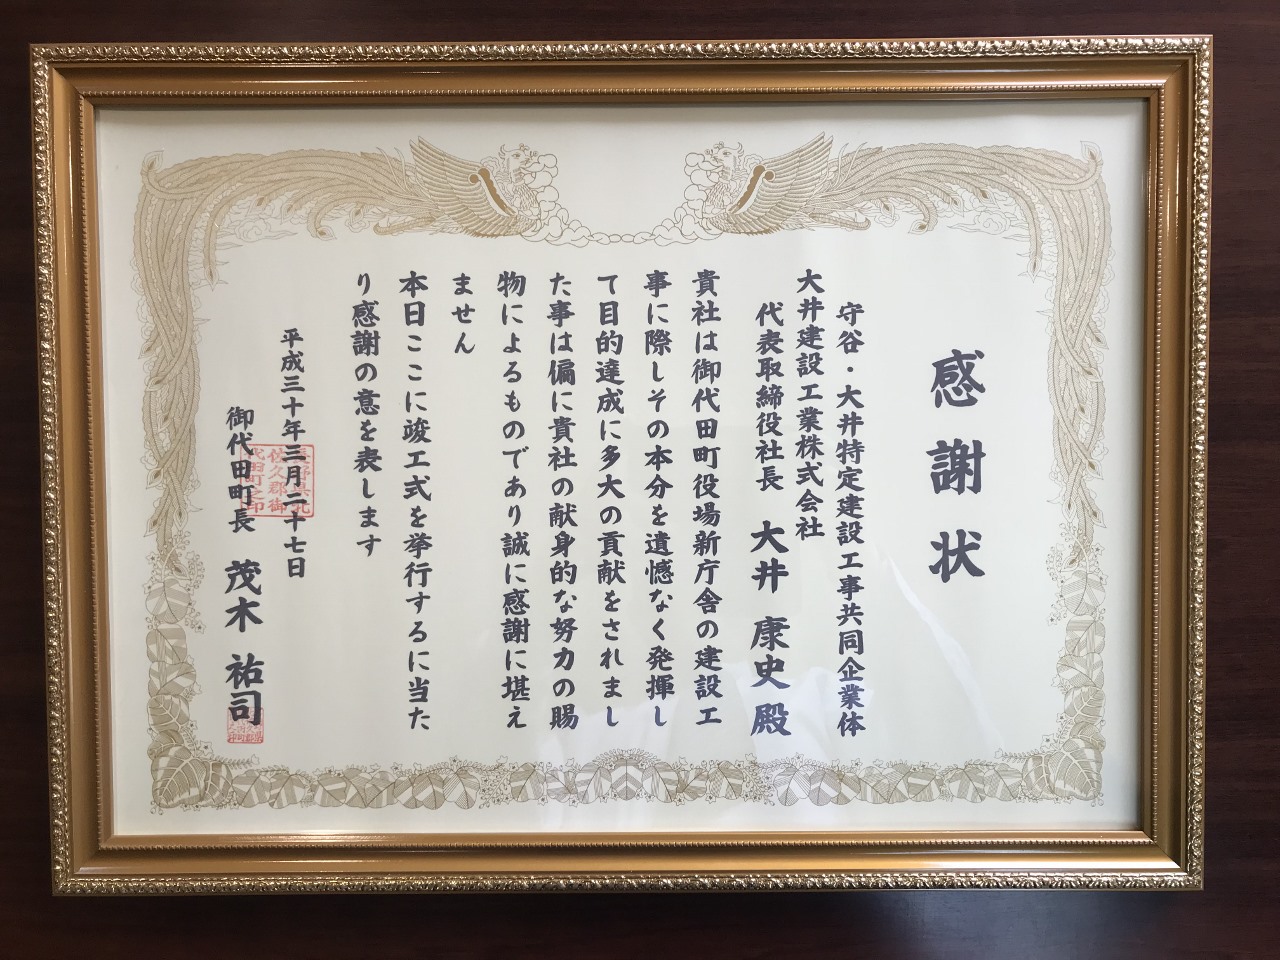 感謝状
守谷・大井特定建設工事共同企業体
大井建設工業株式会社
代表取締役社長 大井 康史 殿
貴社は御代田町役場新庁舎の建設工
事に際しその本分を遺憾なく発揮し
て目的達成に多大の貢献をされまし
た事は偏に貴社の献身的な努力の賜
物によるものであり誠に感謝に堪え
ません
本日ここに竣工式を挙行するに当た
り感謝の意を表します
平成三十年三月二十七日
長野県北
佐久郡御
代田町之印
御代田町長 茂木 祐司